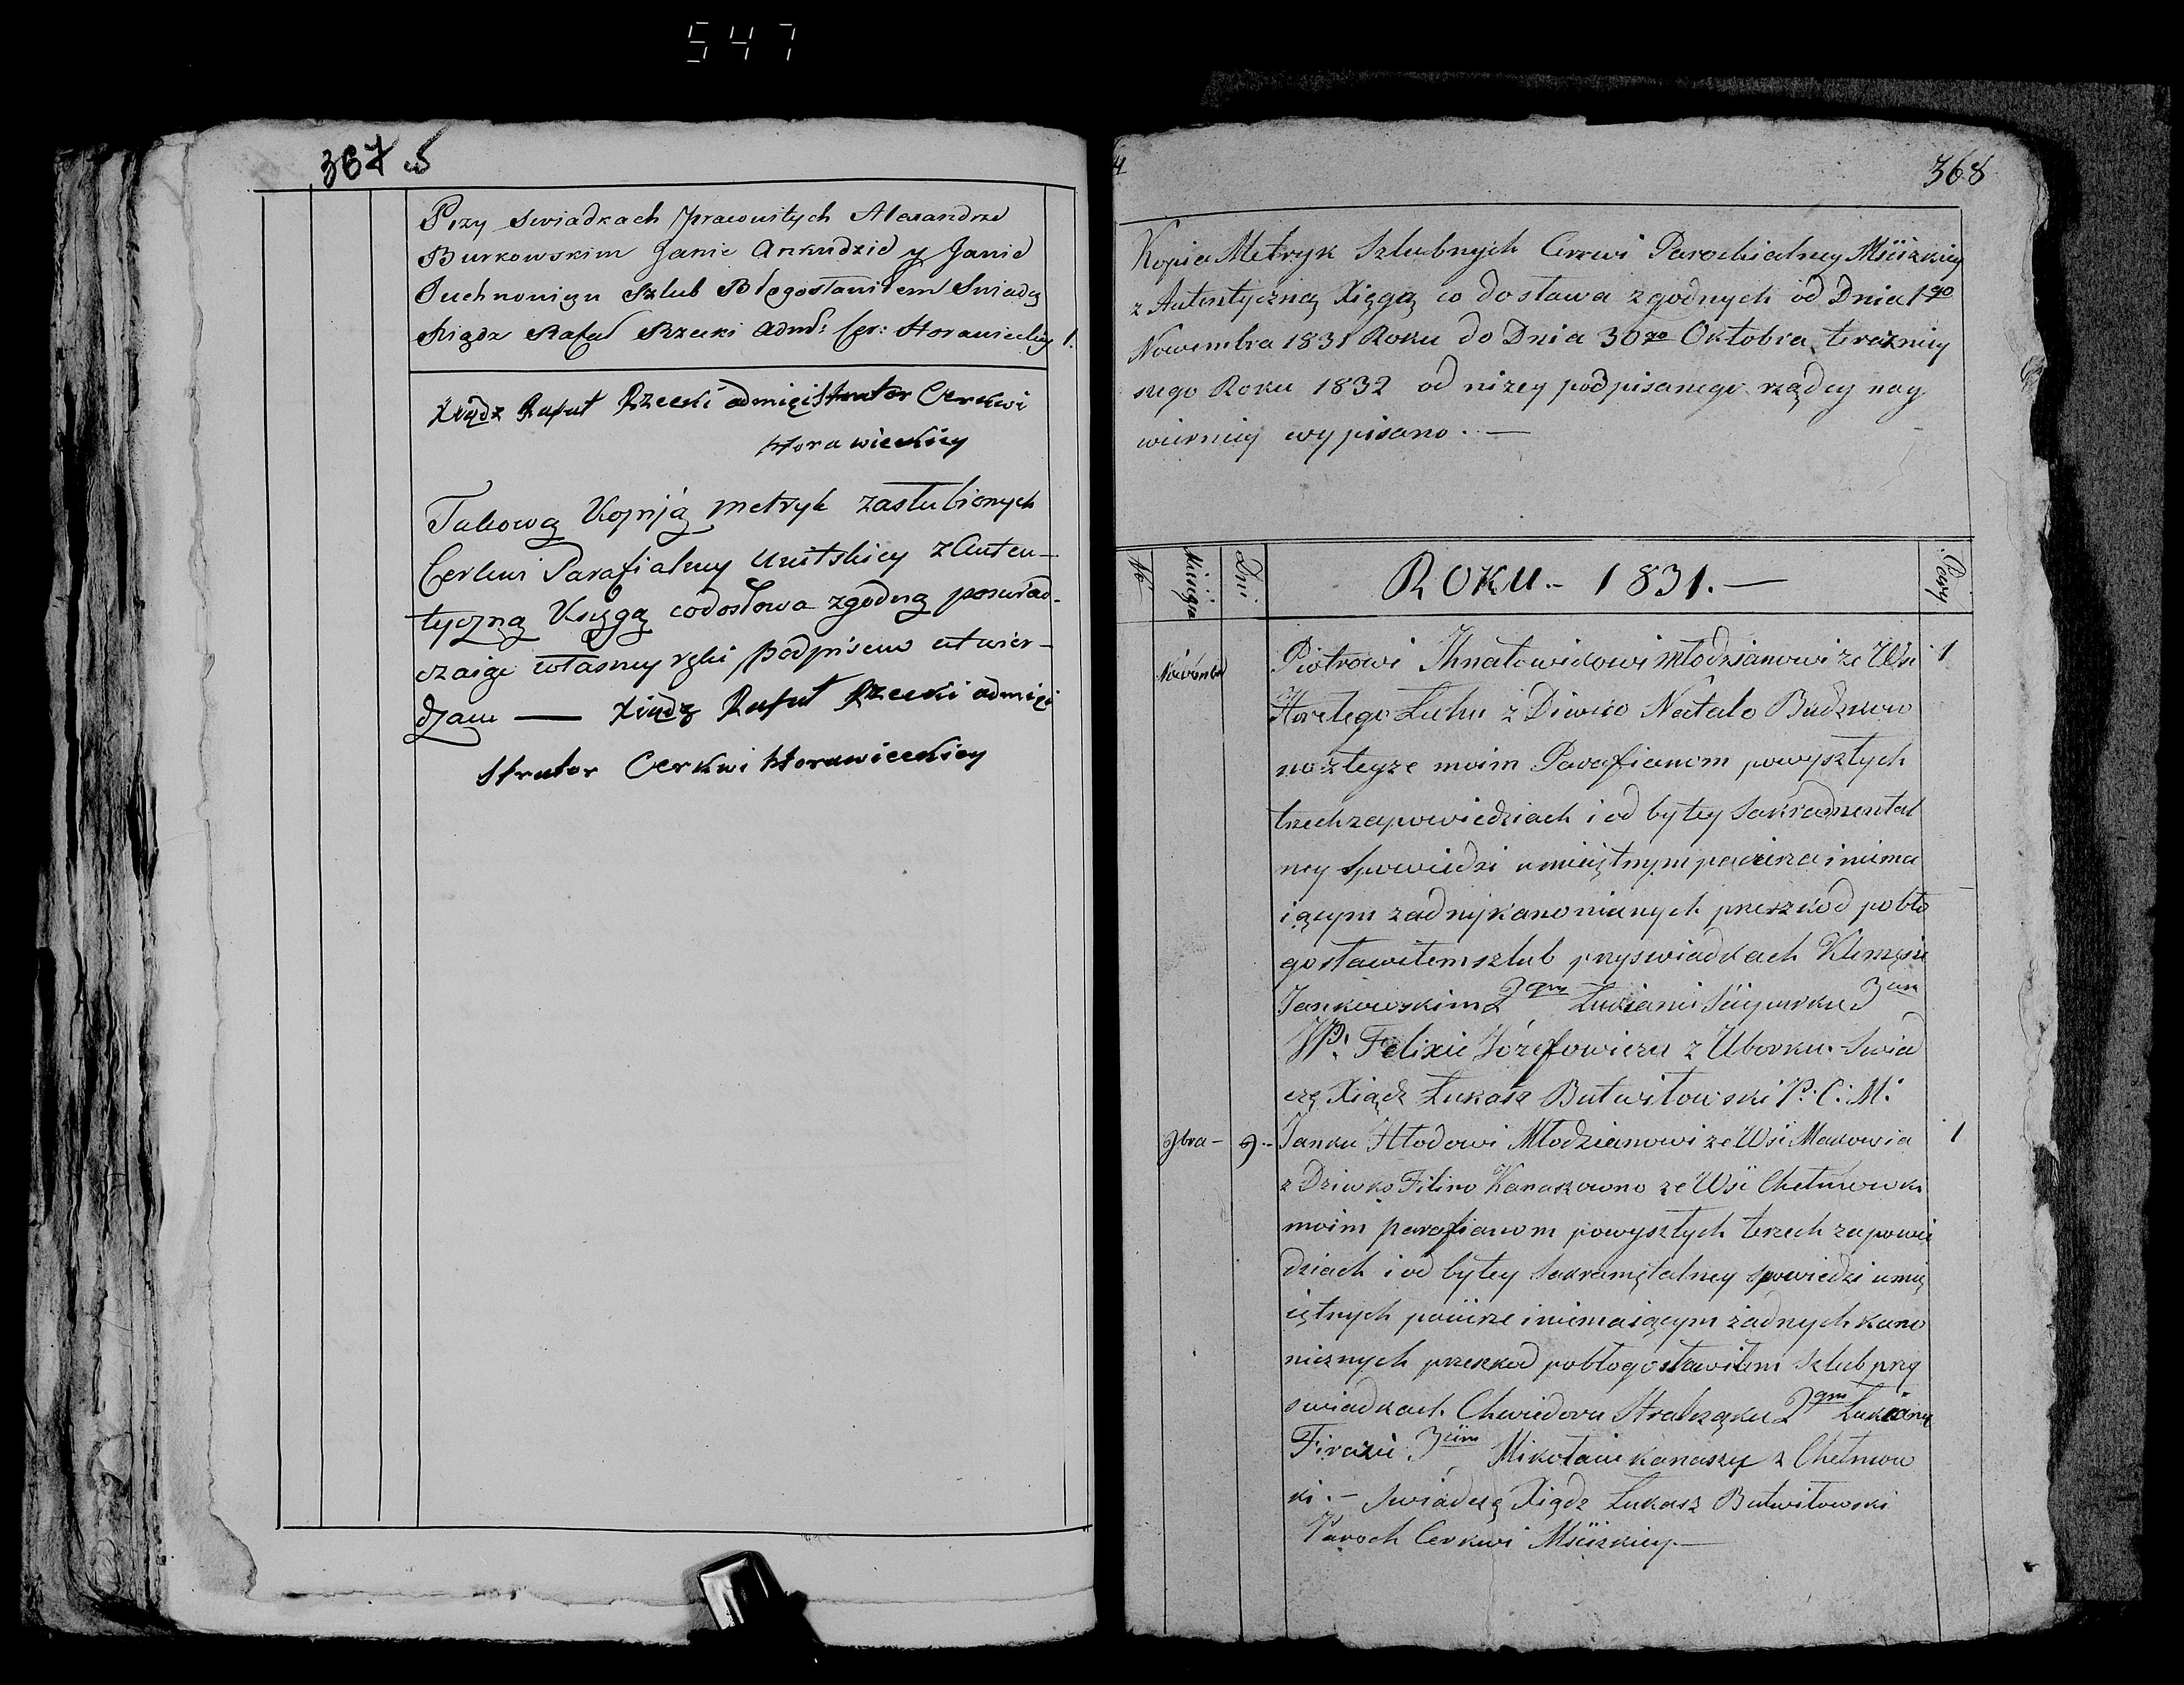 547
367 5
Przy Swiadkach Ipracowitych Alexandrze
Burkowskim Janie Ankudzie y Janie
Juchnowiczu Szlub Błogosławiłem Swiadczę
Xiądz Rafał Rzecki Adm: Cer: Horawieckiey 1.
Xiądz Rafał Rzecki admięistrator Cerkwi
Horawieckiey
Takową Kopiją metryk zaslubionych
Cerkwi Parafialney Unitskiey z Auten-
tyczną Księgą codosłowa zgodną poswiad-
czaiąc własney ręki podpisem utwier-
dzam — Xiądz Rafał Rzecki admięi
strator Cerkwi Horawieckiey
4
368
Kopia Metryk Szlubnych Cerkwi Parochialney Mściżkiey
z Autentyczną Xięgą co do słowa zgodnych od Dnia 1go
Nowembra 1831 Roku do Dnia 30go Oktobra terazniey
szego Roku 1832 od niżey podpisanego rządcy nay
wierniey wypisano. —
No
Miesiąca
Dni
ROKU - 1831. —
Pary
Nowembra
Piotrowi Ihnatowiczowi Młodzianowi ze Wsi 1
Horelego Luhu z Diwko Natalo Budzkow
no zteyże moim Parafianom powyszłych
trzech zapowiedziach i od byłey Sakramental
ney Spowiedzi umieiętnym pacierza i niema
iącym zadnych kanonicznych przeszkod pobło
gosławiłem szlub przyswiadkach
Jankowskim 2gm Łukianie 3im
JP. Felixie Józefowiczu z Uborku. Swiad
czę Xiądz Łukasz Butwiłowski P. C. M.
9bra - 9.- Janku Hłodowi Młodzianowi ze Wsi Makowia 1
z Dziwko Filino Kanaszowno ze Wsi Chełmowki
moim parafianom powyszłych trzech zapowie
dziach i od byłey Sakramętalney spowiedzi umie
iętnych pacierze i niemaiącym żadnych kano
nicznych przeszkod pobłogosławiłem Szlub przy
swiadkach Chwiedoru 2gm Łukiany
3im Mikołaiu Kanaszy z Chełmow
ki. - Swiadczę Xiądz Łukasz Butwiłowski
Paroch Cerkwi Mściżkiey —